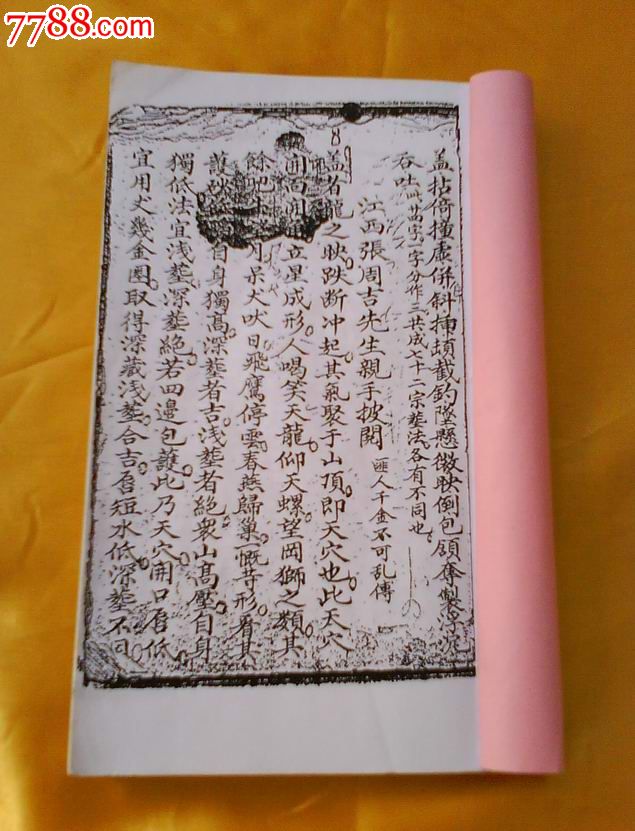 7788.com
8
蓋拈倚撞虛併斜插頭截釣墜懸徽映倒包領牽製浮沉
吞吐此廿四字一字分作三共成七十二宗塟法各有不同也
江西張周吉先生親手披閱 匪人千金不可乱傳
蓋者龍之映跌断冲起其氣聚于山頂即天穴也此天穴
立星成形人喝笑天龍仰天螺望岡獅之類其
餘月呆犬吠日飛鷹停雲春燕歸巢慨昔形看其
護自身獨高深塟者吉浅塟者絕衆山高壓自身
獨低法宜浅塟深塟絕若四邊包護此乃天穴開口唇低
宜用犬幾金圈取得深藏浅塟合吉唇短水低深塟不同